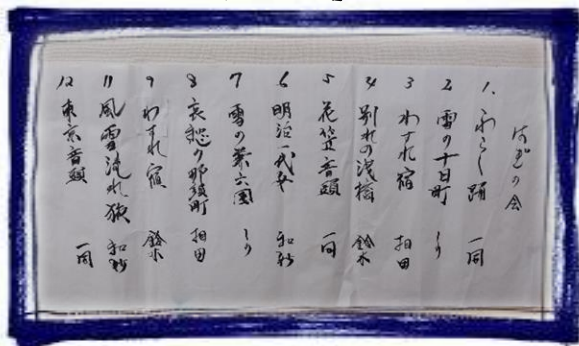 はぎの会
1. ふわらし踊 一同
2 雪の十日町 〃
3 わすれ宿 相田
4 別れの浅橋 鈴木
5 花笠音頭 一同
6 明治一代女 和紗
7 雪の兼六園 〃
8 哀愁の那須町 相田
9 わすれ宿 鈴木
11 風雪流れ旅 和紗
12 東京音頭 一同